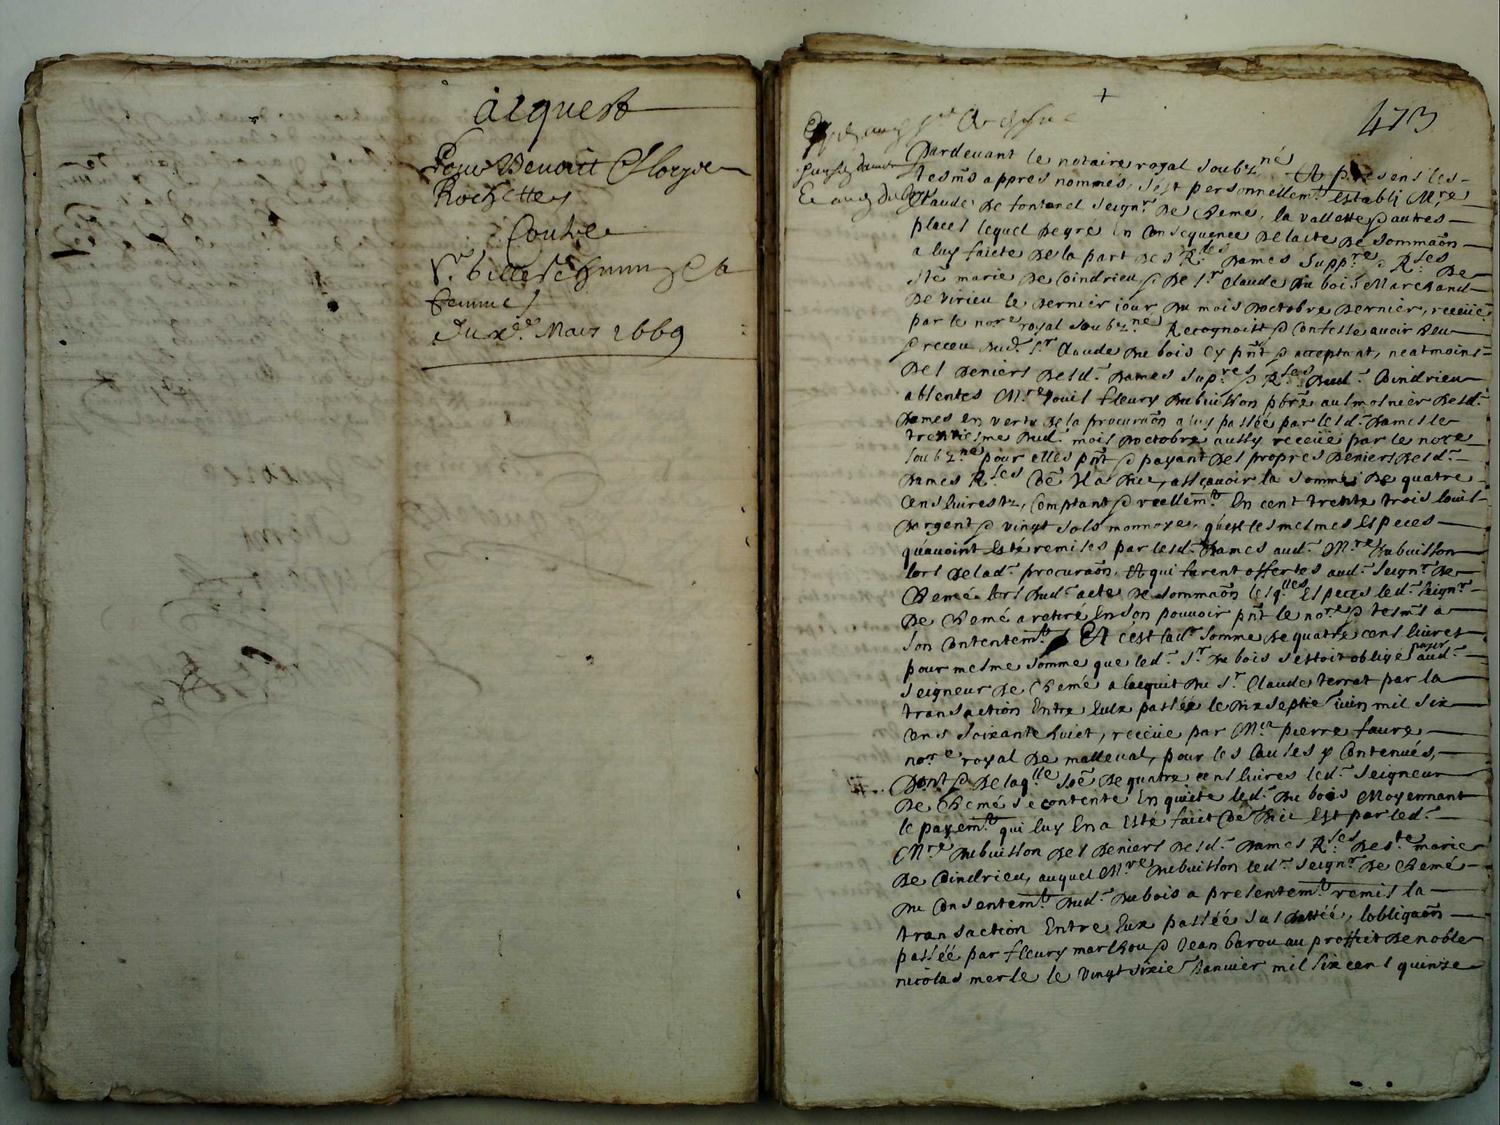 acquest
Pour Benoict
Rochette
Contre
femme
Du xe. Mars 1669
473
Pardevant le notaire royal soubzne Et presens les
tesms appres nommés, sest personnellemt. establi Mre
Claude De fontanel seignr. De Chemé, la vallette & autres
places lequel de gré En Consequence De lacte De sommaon
a luy faicte De la part Des Rdes Dames Suppre & Rses De
Ste marie De Coindrieu & De Sr. Claude Du bois Marchand
De virieu le Dernier jour Du mois Doctobre Dernier, receue
par le nore royal soubzne. Recognoist & Confesse avoir Heu
& receu Dud. Sr. Claude Du bois Cy pnt & acceptant, neatmoins
Des Deniers Desd. Dames Supres & Rses Dud. Coindrieu
absentes Mre Louis fleury Dubuisson pbre aulmosnier Desd.
Dames en vertu De la procuraon a luy passée par lesd. Dames le
trentiesme Dud. mois Doctobre aussy receue par le nore
soubzne pour elles pnt & payant Des propres Deniers Desd.
Dames Rses, assçavoir la somme De quatre
Cens livres tz, Comptant & reellemt. En cent trente trois louis
Dargent & vingt sols monnoye, quest les mesmes Especes
quavoint Esté remises par lesd. Dames aud. Mre Dubuisson
lors De lad. procuraon, Et qui furent offertes aud. Seignr. De
Chemé lors Dud. acte De sommaon lesqlles Especes led. seignr.
De Chemé a retiré En son pouvoir pnt le nore & tesms a
son Contentemt. Et cest lad. somme De quatre cens livres
pour mesme somme que led. Sr. Du bois sestoit obligé payer aud.
Seigneur De Chemé a lacquit Du Sr. Claude terrat par la
transaction Entre Eulx passée le Dix septie juin mil six
cens soixante huict, receue par Me pierre faure
nore royal De malleval, pour les Causes y Contenues,
Dont & De laqlle soe De quatre cens livres led. Seigneur
De Chemé se contente En quitte led. Du bois Moyennant
le payemt. qui luy En a Esté faict Est par led.
Mre Dubuisson Des Deniers Desd. Dames Rses De Ste marie
De Coindrieu, auquel Mre Dubuisson led. seignr. De Chemé
Du Consentemt. Dud. Dubois a presentemt. remis la
transaction Entre Eux passée sus Dattée, lobligaon
passée par fleury marthou & Jean barou au proffict De noble
nicolas merle le vingt sixie Janvier mil six cens quinze